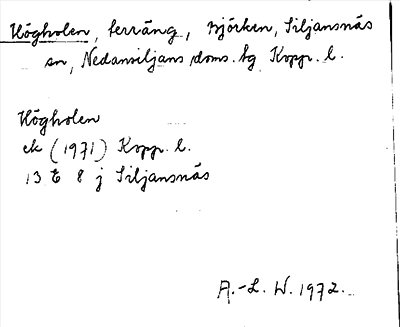 Högholen, terräng, Björken, Siljansnäs
sn, Nedansiljans doms. tg Kopp. l.
Högholen
ek (1971) Kopp. l.
13 E 8 j Siljansnäs
A.-L. W. 1972.